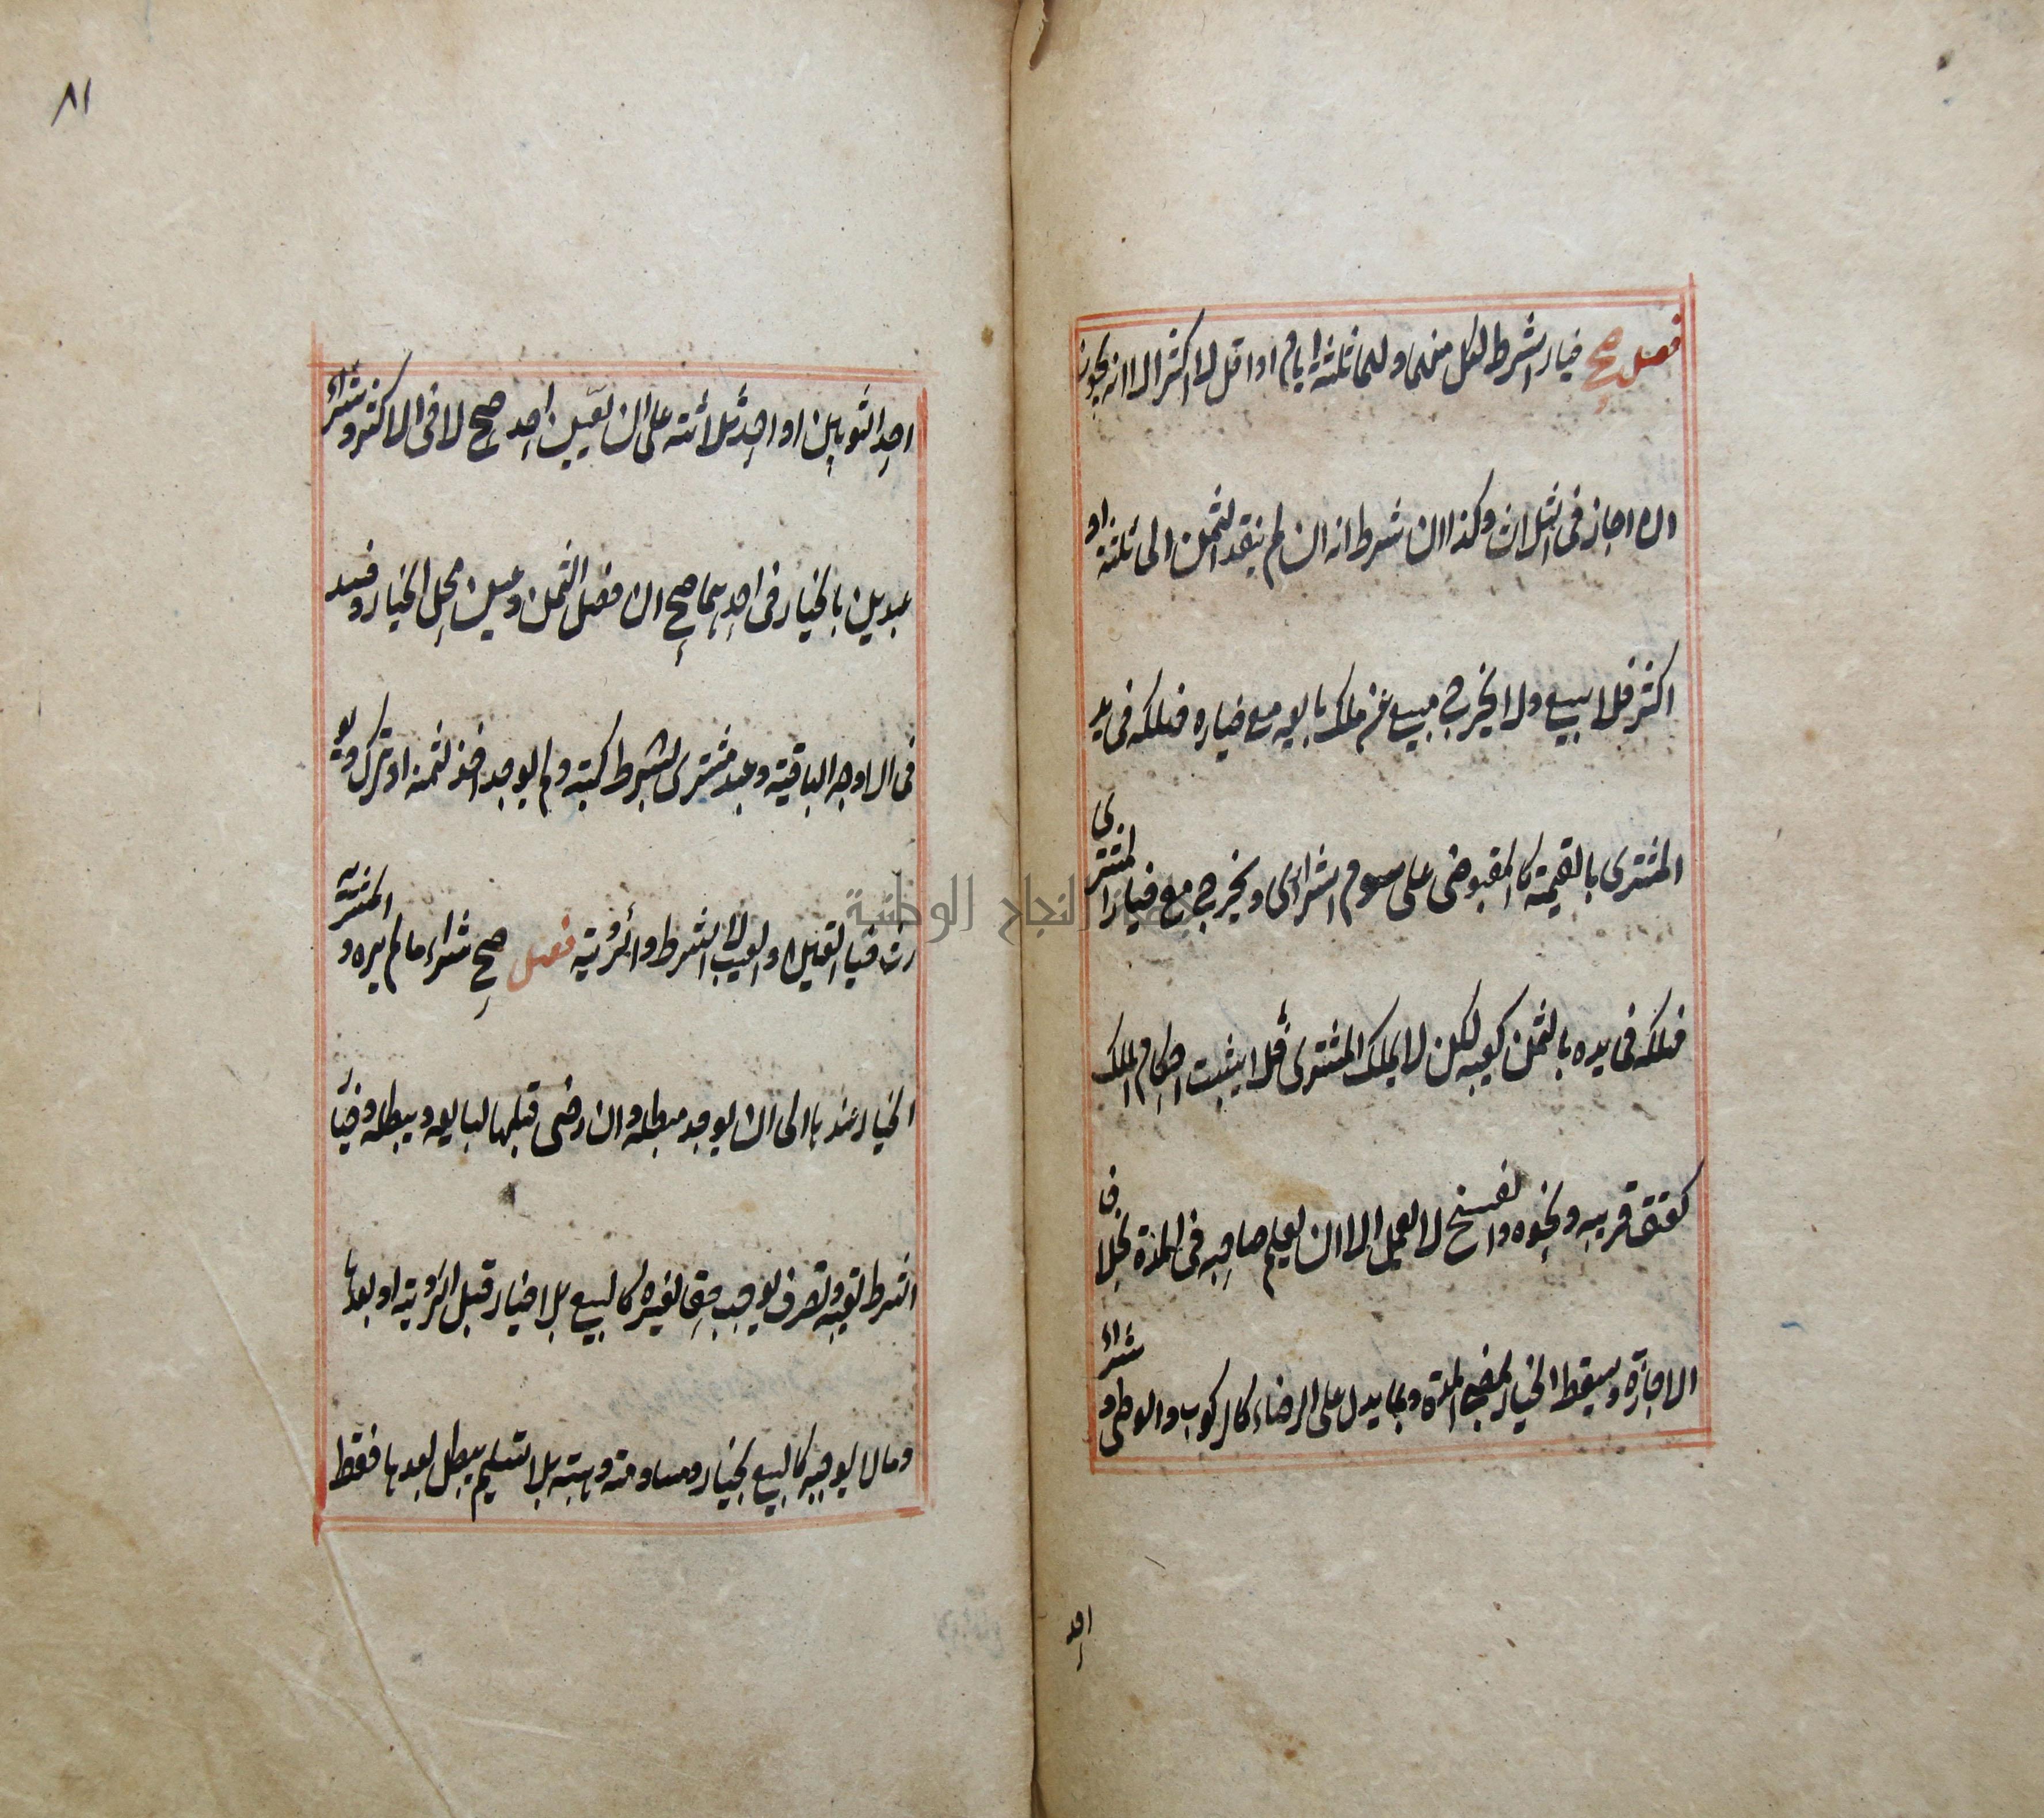 فصل صح خيار الشرط لكل منهما ولهما ثلثة ايام او اقل لا اكثر الا انه يجوز
ان اجاز في الثلاث وكذا ان شرط انه ان لم ينقد الثمن الى ثلثة او
اكثر فلا بيع ولا يخرج مبيع عن ملك بايعه مع خياره فهلكه في يد
المشترى بالقيمة كالمقبوض على سوم الشراى ويخرج مع خيار المشترى
فهلكه في يده بالثمن كعيبه لكن لا يملك المشترى فلا يثبت احكام الملك
كعتق قريبه ونحوه والفسخ لا يعمل الا ان يعلم صاحبه في المدة بخلاف
الاجازة ويسقط الخيار بمضي المدة وبما يدل على الرضاء كالركوب والوطى و شراء
احد
٨١
احد الثوبين او احد ثلاثته على ان يعين احد صح لا في الاكثر وشراء
عبدين بالخيار في احدهما صح ان فصل الثمن وعين محل الخيار وفسد
في الاوجه الباقية وعبد مشترى بشرط كتبه ولم يوجد اخذ بثمنه او ترك ويو
رث خيار التعيين والعيب لا الشرط والرؤية فصل صح شراء ما لم يره و لمشتريه
الخيار عندها الى ان يوجد مبطله وان رضى قبلها لبايعه ويبطله وخيار
الشرط تعيبه وتصرف يوجب حق الغير كالبيع بلا خيار قبل الرؤية او بعدها
وما لا يوجبه كالبيع بخيار ومساومته وهبته بلا تسليم يبطل بعدها فقط
النجاح الوطنية